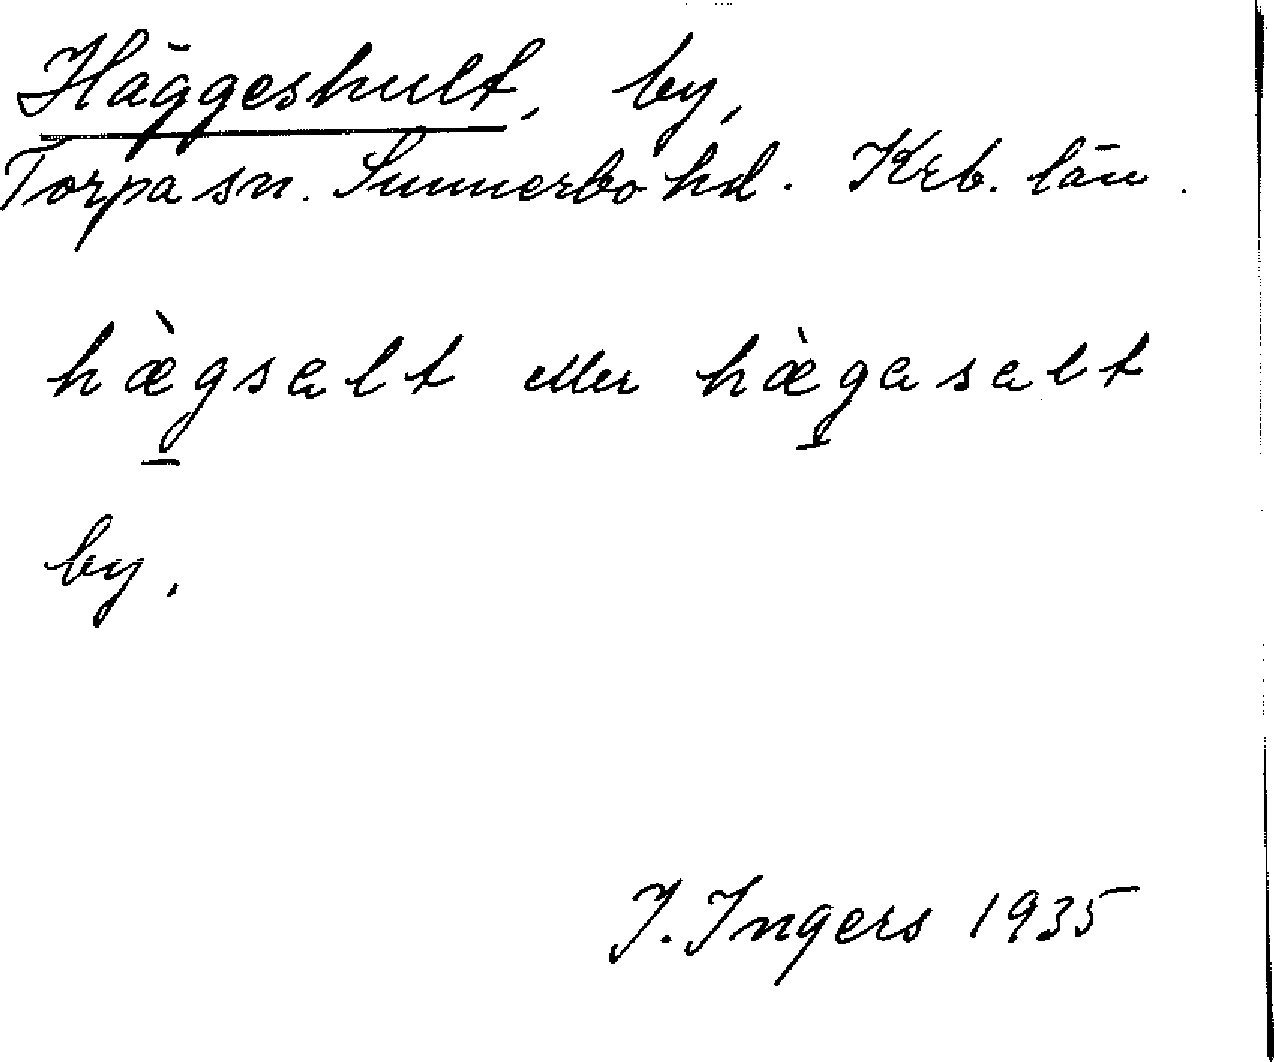 Häggeshult, by,
Torpa sn. Sunnerbo hd. Krb. län.
hæ̀gsalt eller hæ̀gasalt
by.
I. Ingers 1935